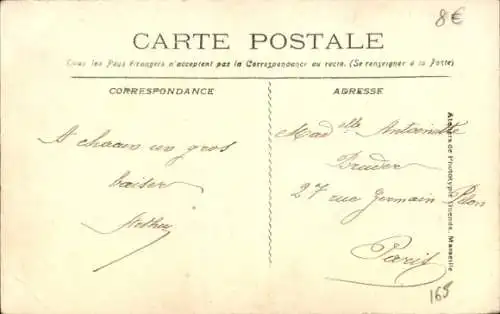 8€
CARTE POSTALE
Tous les Pays étrangers n'acceptent pas la Correspondance au recto. (Se renseigner à la Poste)
CORRESPONDANCE
A chacun un gros
baiser
ADRESSE
Mad elle Antoinette
Bruder
27 rue Germain Pilon
Paris
165
Ateliers de Phototypie Guende, Marseille